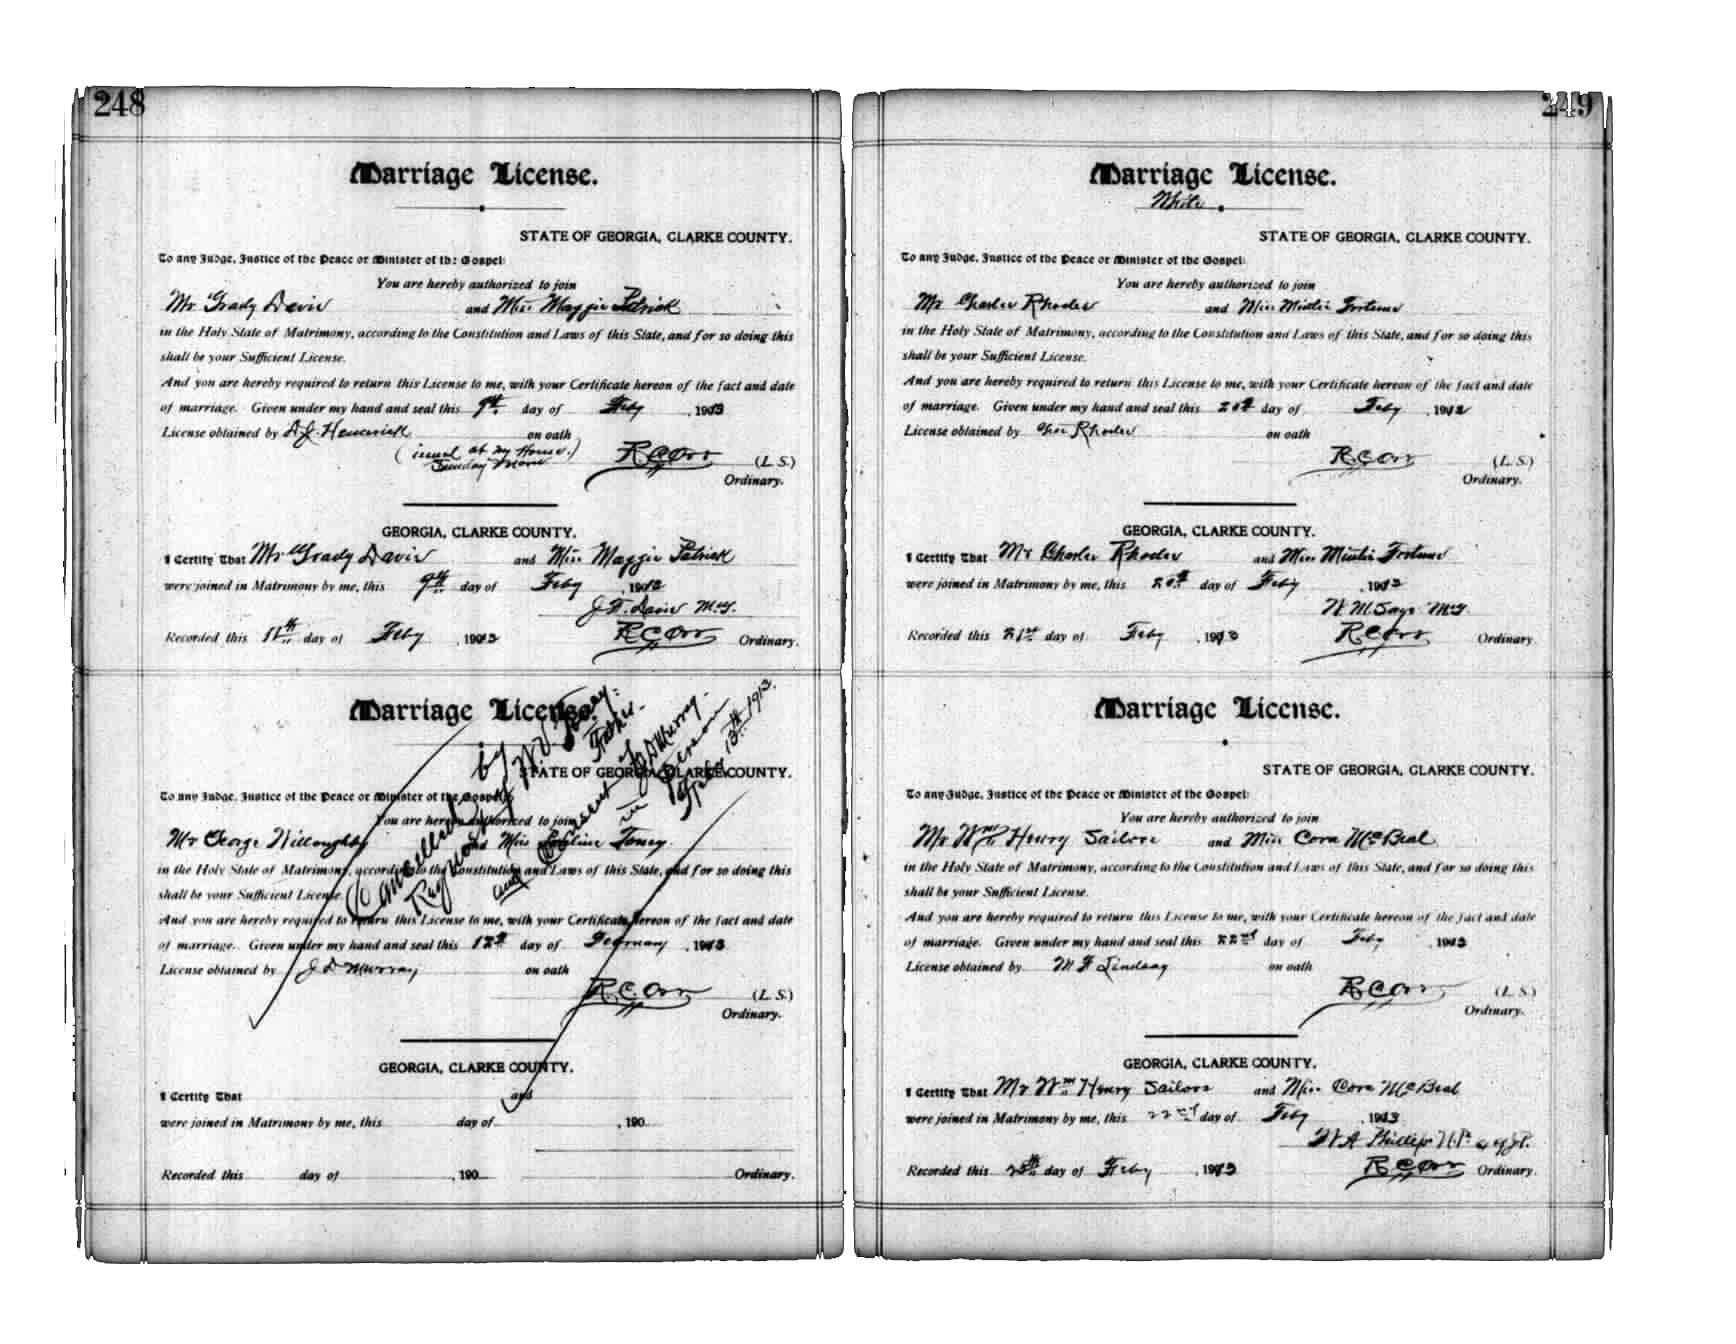 248
Marriage License.
STATE OF GEORGIA, CLARKE COUNTY.
To any Judge, Justice of the Peace or Minister of the Gospel:
You are hereby authorized to join
Mr Grady Davis and Miss Maggie Patrick
in the Holy State of Matrimony, according to the Constitution and Laws of this State, and for so doing this
shall be your Sufficient License.
And you are hereby required to return this License to me, with your Certificate hereon of the fact and date
of marriage. Given under my hand and seal this 9th day of Feby, 1913
License obtained by on oath
(issued at my House.)
Sunday
R C Orr (L. S.)
Ordinary.
GEORGIA, CLARKE COUNTY.
I Certify That Mr Grady Davis and Miss Maggie Patrick
were joined in Matrimony by me, this 9th day of Feby, 1913
J. F. Davis M.G.
Recorded this 11th day of Feby, 1913 R C Orr Ordinary.
Marriage License.
STATE OF GEORGIA, CLARKE COUNTY.
To any Judge, Justice of the Peace or Minister of the Gospel:
You are hereby authorized to join
Mr George Willoughby and Miss Pauline Toney
in the Holy State of Matrimony, according to the Constitution and Laws of this State, and for so doing this
shall be your Sufficient License.
And you are hereby required to return this License to me, with your Certificate hereon of the fact and date
of marriage. Given under my hand and seal this 12th day of February, 1913
License obtained by J D Murray on oath
R. C. Orr (L. S.)
Ordinary.
Cancelled by
Request of W. V. Toney.
Father.
and Consent of J D Murray.
in Person
Feby 13th 1913.
GEORGIA, CLARKE COUNTY.
I Certify That and
were joined in Matrimony by me, this day of , 190
Recorded this day of , 190 Ordinary.
249
Marriage License.
White
STATE OF GEORGIA, CLARKE COUNTY.
To any Judge, Justice of the Peace or Minister of the Gospel:
You are hereby authorized to join
Mr Charles Rhodes and Miss Mintie Fortune
in the Holy State of Matrimony, according to the Constitution and Laws of this State, and for so doing this
shall be your Sufficient License.
And you are hereby required to return this License to me, with your Certificate hereon of the fact and date
of marriage. Given under my hand and seal this 20th day of Feby, 1913
License obtained by Chas Rhodes on oath
R C Orr (L. S.)
Ordinary.
GEORGIA, CLARKE COUNTY.
I Certify That Mr Charles Rhodes and Miss Mintie Fortune
were joined in Matrimony by me, this 20th day of Feby, 1913
W M Saye M.G.
Recorded this 21st day of Feby, 1913 R C Orr Ordinary
Marriage License.
STATE OF GEORGIA, CLARKE COUNTY.
To any Judge, Justice of the Peace or Minister of the Gospel:
You are hereby authorized to join
Mr Wm Henry Sailors and Miss Cora McBeal
in the Holy State of Matrimony, according to the Constitution and Laws of this State, and for so doing this
shall be your Sufficient License.
And you are hereby required to return this License to me, with your Certificate hereon of the fact and date
of marriage. Given under my hand and seal this 22nd day of Feby, 1913
License obtained by M F Lindsay on oath
R C Orr (L. S.)
Ordinary.
GEORGIA, CLARKE COUNTY.
I Certify That Mr Wm Henry Sailors and Miss Cora McBeal
were joined in Matrimony by me, this 22nd day of Feby, 1913
W A Phillips N.P. & J.P.
Recorded this 25th day of Feby, 1913 R C Orr Ordinary.